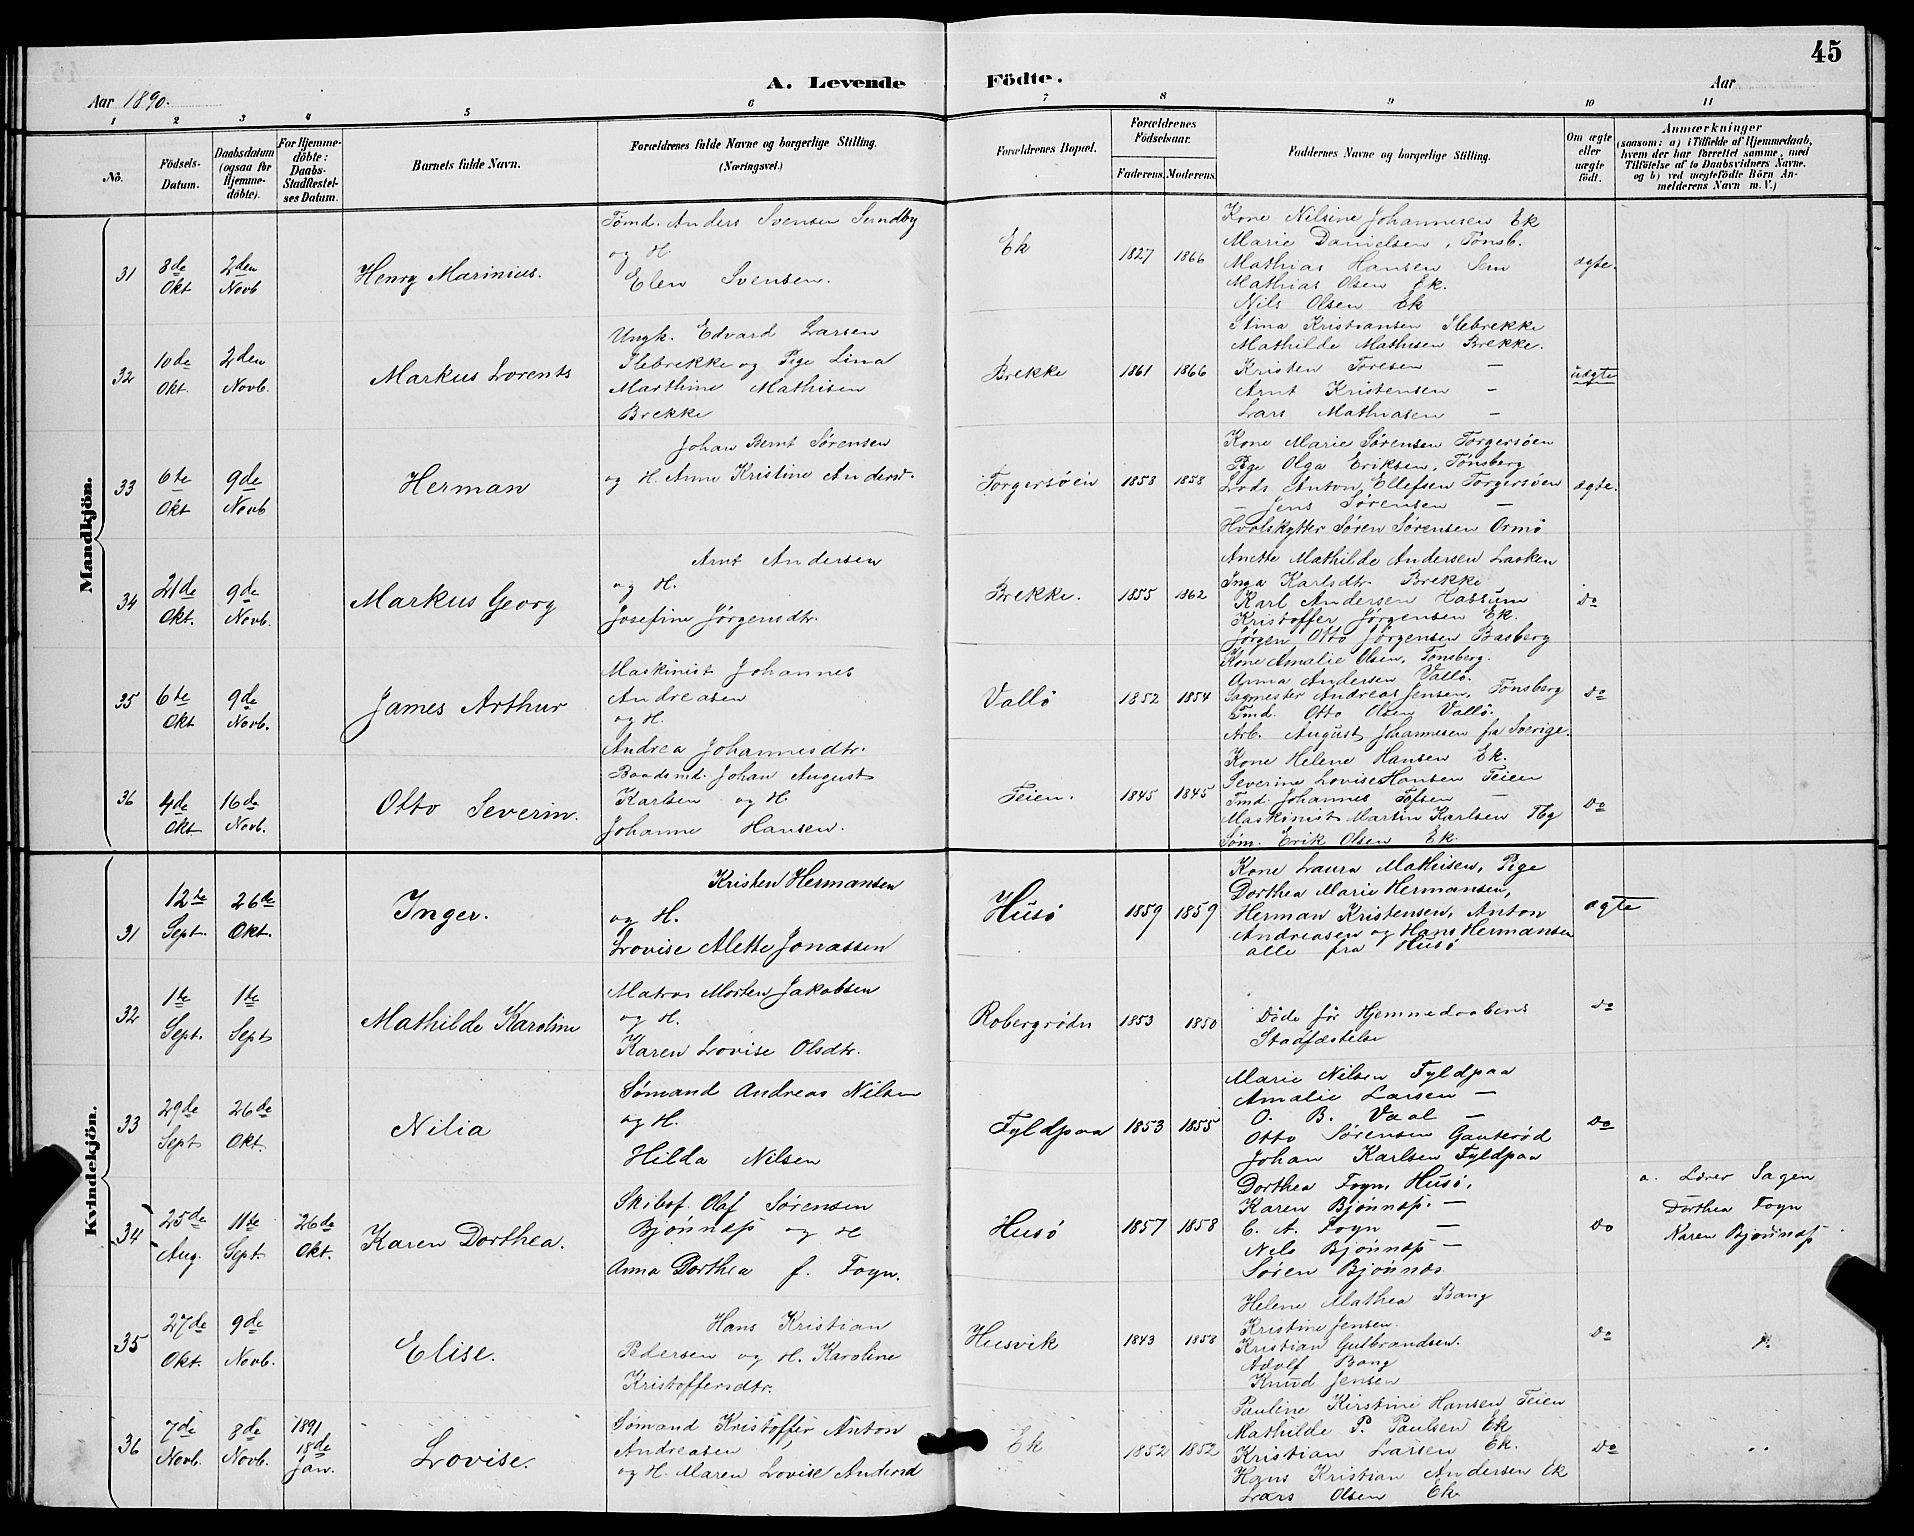 45
A. Levende Födte.
Aar 1890. Aar
1 2 3 4 5 6 7 8 9 10 11
No. | Födsels-Datum. | Daabsdatum (ogsaa for Hjemmedöbte). | For Hjemmedöbte: Daabs-Stadfæstelses Datum. | Barnets fulde Navn. | Forældrenes fulde Navne og borgerlige Stilling. (Næringsvei.) | Forældrenes Bopæl. | Forældrenes Födselsaar. Faderens. Moderens. | Faddernes Navne og borgerlige Stilling. | Om ægte eller uægte födt. | Anmærkninger (saasom: a) i Tilfælde af Hjemmedaab, hvem der har forrettet samme, med Tilföielse af to Daabsvidners Navne, og b) ved uægtefödte Börn Anmelderens Navn m. V.)
Mandkjön.
31 3de Okt 2den Novb Henry Marinius.
Tømd. Anders Svensen Sundby
og H.
Elen Svensen.
Ek 1827 1866
Kone Nilsine Johannesen Ek
Marie Danielsen, Tønsb.
Mathias Hansen Sem
Mathias Olsen Ek.
Nils Olsen Ek
ægte.
32 10de Okt. 2den Novb. Markus Lorents
Ungk. Edvard Larsen
Ilebrekke og Pige Lina
Marthine Mathisen
Brekke
Brekke 1861 1866
Stina Kristiansen Ilebrekke
Mathilde Mathisen Brekke.
Kristen Toresen —
Arnt Kristensen —
Lars Mathiasen —
uægte
33 6te Okt 9de Novb Herman
Johan Bernt Sørensen
og H. Anne Kristine Andersd.
Torgersøen 1853 1858
Kone Marie Sørensen Torgersøen
Pige Olga Eriksen, Tønsberg
Lods Anton Ellefsen Torgersøen
— Jens Sørensen —
Hvalskytter Søren Sørensen Ormø
ægte.
34 21de Okt. 9de Novb. Markus Georg
Arnt Andersen
og H.
Josefine Jørgensdtr.
Brekke. 1855 1862
Anette Mathilde Andersen Laoken
Inga Karlsdtr. Brekke
Karl Andersen Hassum
Kristoffer Jørgensen Ek.
Jørgen Otto Jørgensen Basberg
Do
35 6te Okt 9de Novb. James Arthur
Maskinist Johannes
Andreasen
og H.
Andrea Johannesdtr.
Vallø 1852 1854
Kone Amalie Olsen, Tønsberg.
Anna Andersen Vallø.
Sagmester Andreas Jensen, Tønsberg
Tmd. Otto Olsen Vallø.
Arb. August Johannesen fra Sverige.
Do
36 4de Okt. 16de Novb. Otto Severin.
Baadsmd. Johan August
Karlsen og H.
Johanne Hansen.
Teien. 1845 1845
Kone Helene Hansen Ek.
Severine Lovise Hansen Teien
Tmd. Johannes Tofsen —
Maskinist Martin Karlsen Tbg
Søm. Erik Olsen Ek.
Do
Kvindekjön.
31 12te Sept. 26de Okt. Inger.
Kristen Hermansen
og H.
Lovise Alette Jonassen
Husø 1859 1859
Kone Laura Mathisen, Pige
Dorthea Marie Hermansen,
Herman Kristensen, Anton
Andreasen og Hans Hermansen
alle fra Husø
ægte
32 1te Sept. 1te Sept Mathilde Karoline
Matros Morten Jakobsen
og H.
Karen Lovise Olsdtr.
Robergrødn 1853 1850
Døde før Hjemmedaabens
Stadfæstelse
Do
33 29de Sept 26de Okt. Nilia
Sømand Andreas Nilsen
og H.
Hilda Nilsen
Fyldpaa 1853 1855
Marie Nilsen Fyldpaa
Amalie Larsen —
O. B. Vaal —
Otto Sørensen Gauterød
Johan Karlsen Fyldpaa
Do
34 25de Aug. 11te Sept. 26de Okt. Karen Dorthea.
Skibsf. Olaf Sørensen
Bjønnæs og H
Anna Dorthea f. Foyn.
Husø 1857 1858
Dorthea Foyn, Husø.
Karen Bjønnæs. —
C. A. Foyn —
Nils Bjønnæs —
Søren Bjønnæs
Do
a. Lærer Sagen
Dorthea Foyn
Karen Bjønnæs
35 27de Okt. 9de Novb. Elise.
Hans Kristian
Pedersen og H. Karoline
Kristoffersdtr.
Husvik 1843 1858
Helene Mathea Bang
Kristine Jensen.
Kristian Gulbrandsen.
Adolf Bang
Knud Jensen
Do
36 7de Novb. 8de Novb. 1891 18de Jan. Lovise.
Sømand Kristoffer Anton
Andreasen
og H. Maren Lovise Andersd
Ek 1852 1852
Pauline Kirstine Hansen Teien
Mathilde P. Paulsen Ek
Kristian Larsen Ek.
Hans Kristian Andersen Ek
Lars Olsen Ek
Do